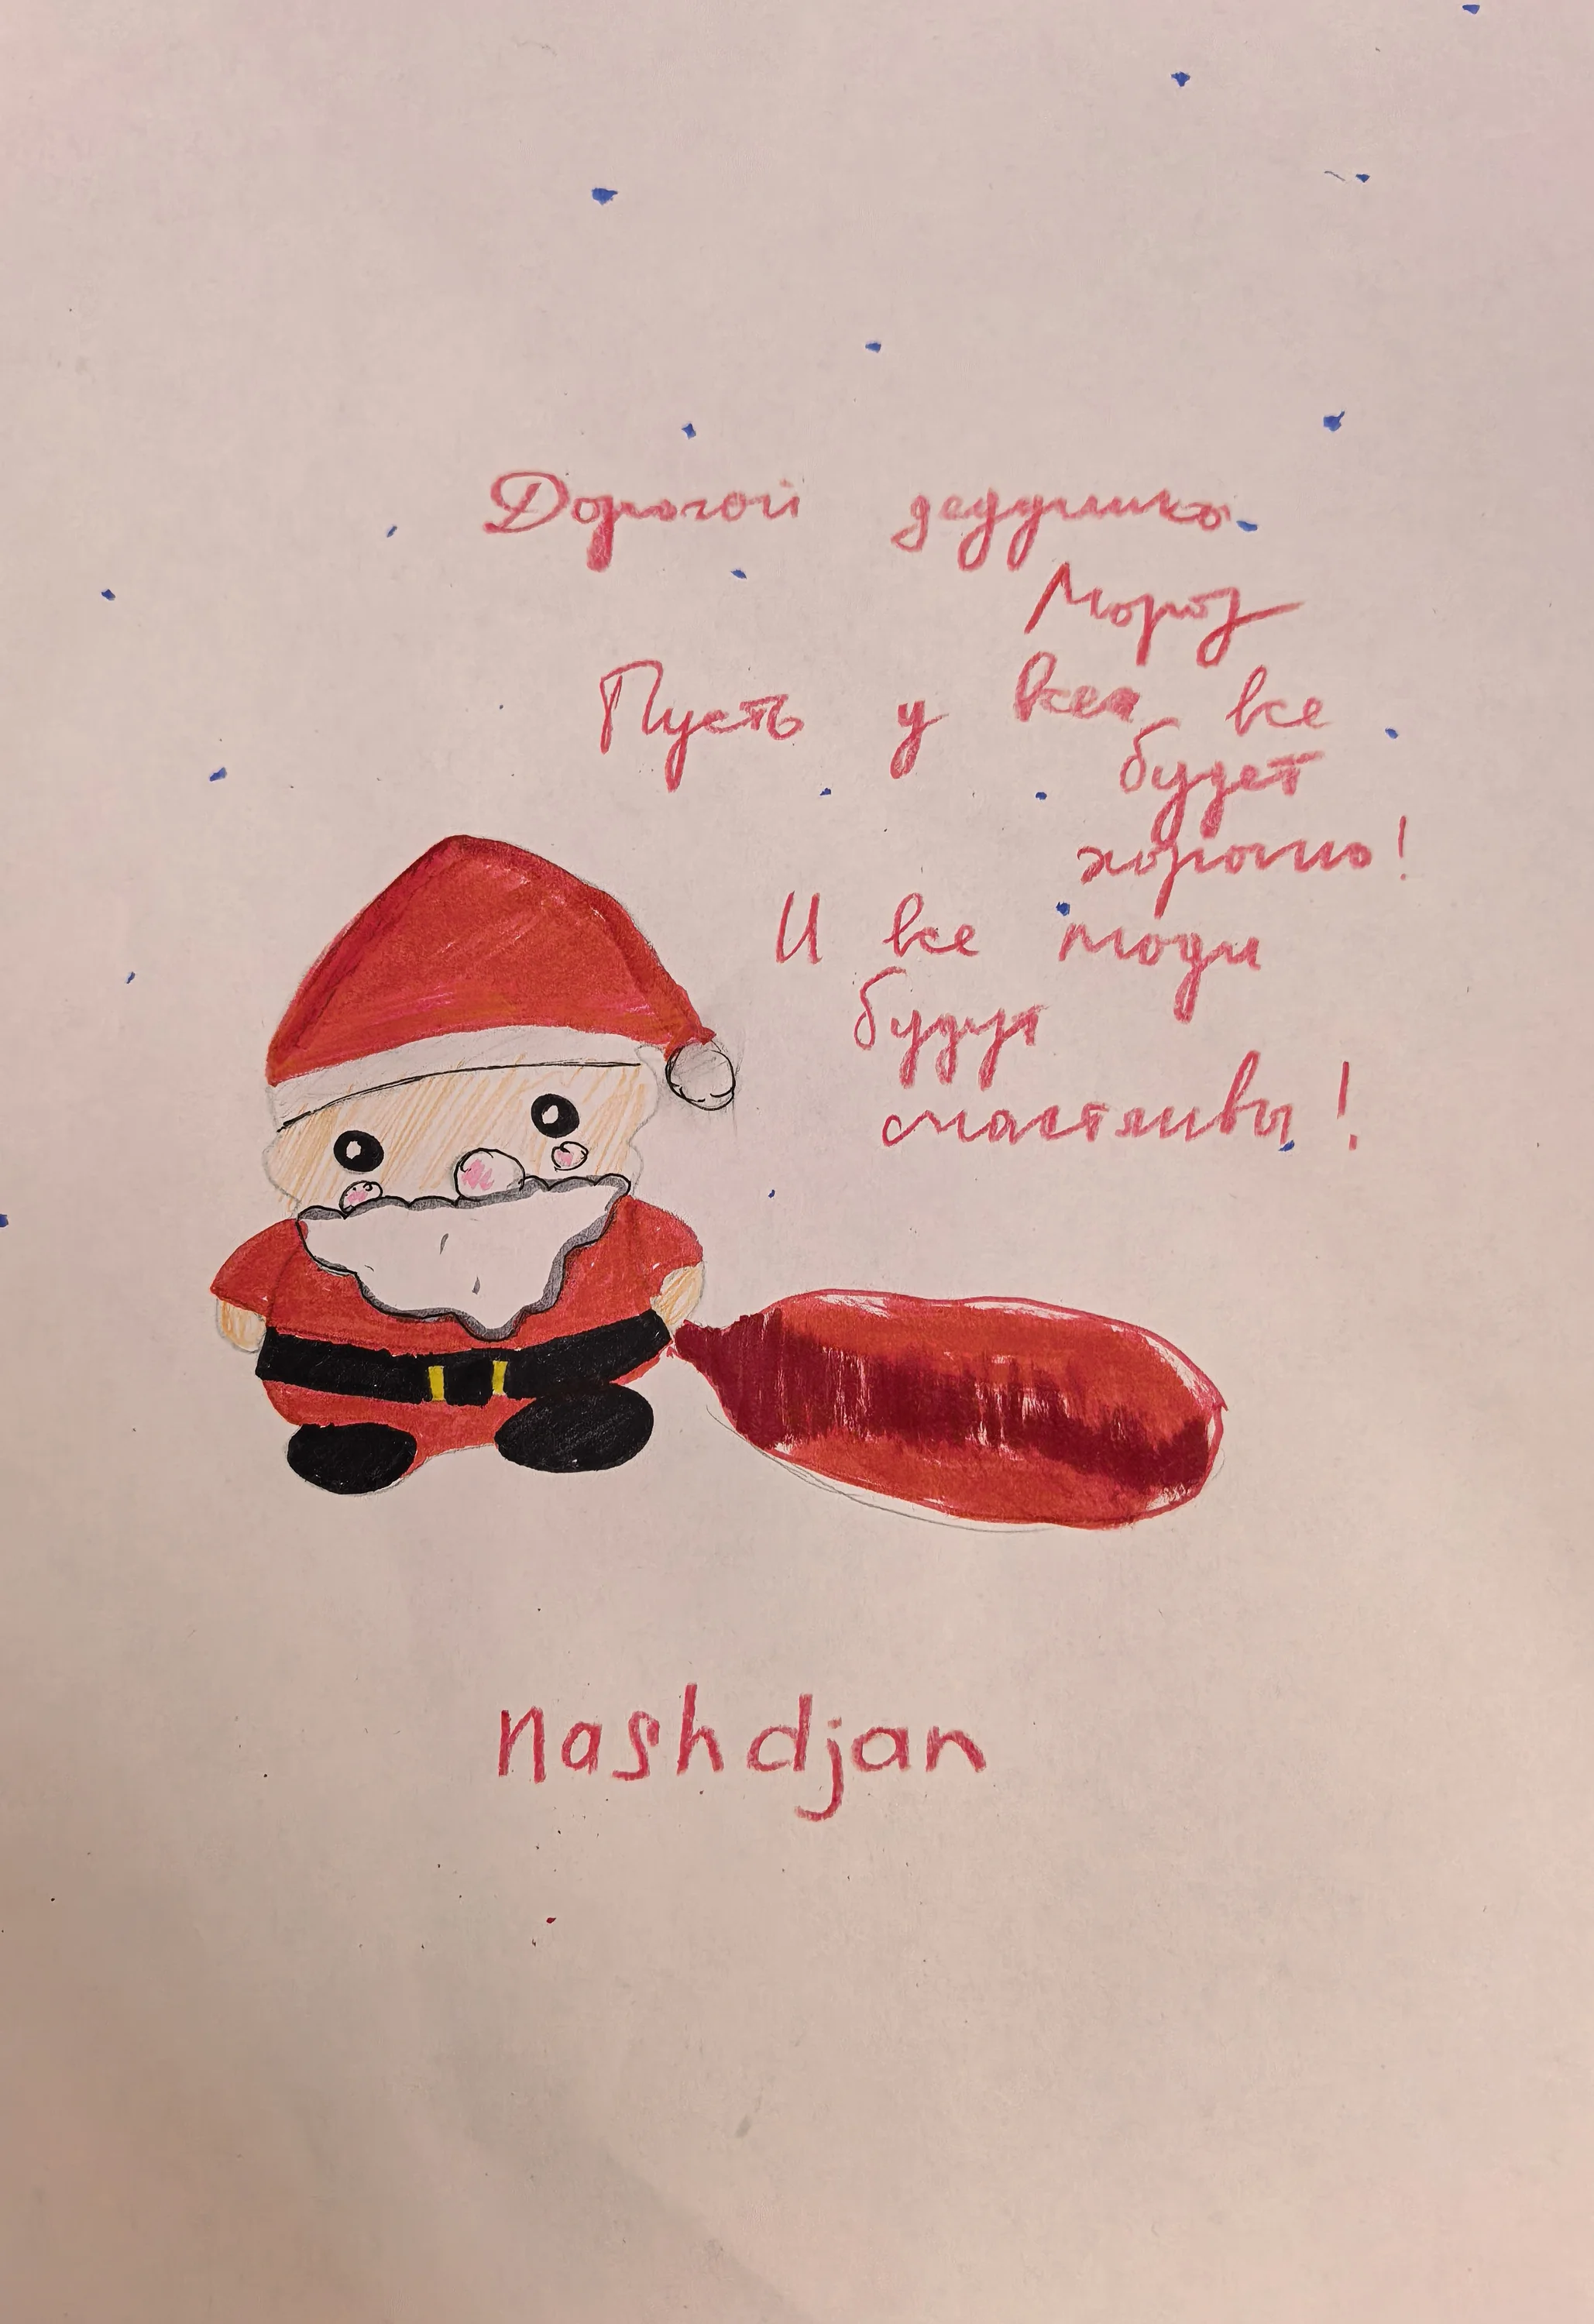 Дорогой дедушка
Мороз
Пусть у всех все
будет
хорошо!
И все люди
будут
счастливы!
nashdjan